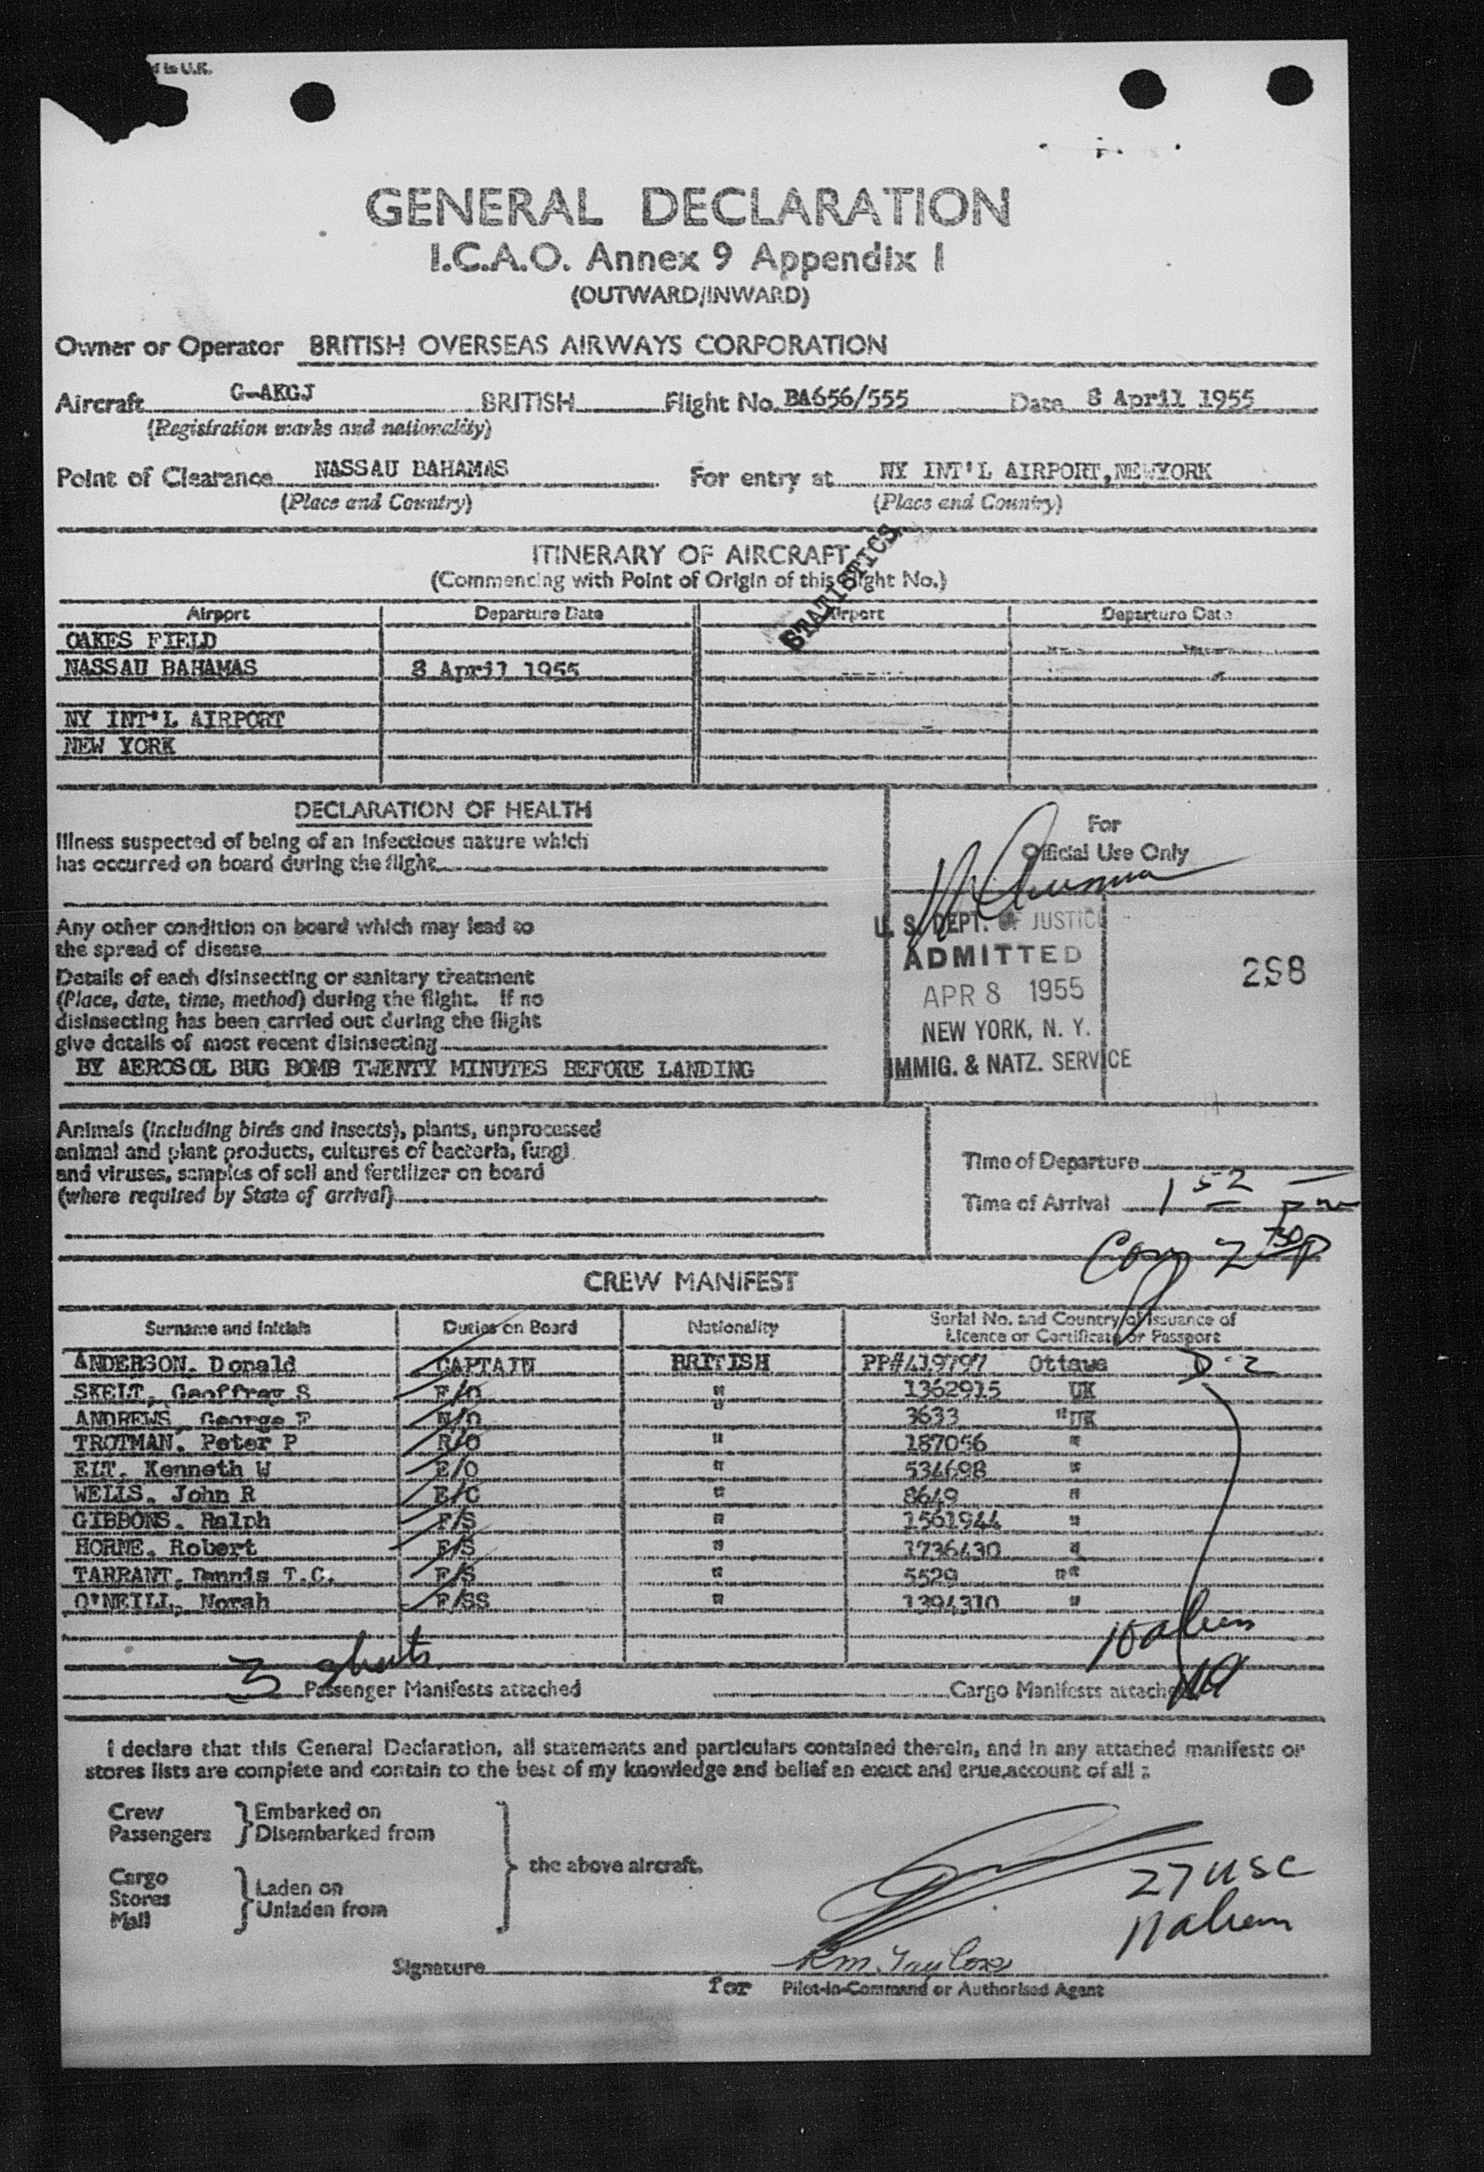 d in U.K.
GENERAL DECLARATION
I.C.A.O. Annex 9 Appendix I
(OUTWARD/INWARD)
Owner or Operator BRITISH OVERSEAS AIRWAYS CORPORATION
Aircraft G-AKGJ BRITISH Flight No. BA656/555 Date 8 April 1955
(Registration marks and nationality)
Point of Clearance NASSAU BAHAMAS For entry at NY INT'L AIRPORT, NEWYORK
(Place and Country) (Place and Country)
STATISTICS
ITINERARY OF AIRCRAFT
(Commencing with Point of Origin of this flight No.)
Airport Departure Date Airport Departure Date
OAKES FIELD
NASSAU BAHAMAS 8 April 1955
NY INT'L AIRPORT
NEW YORK
DECLARATION OF HEALTH
Illness suspected of being of an infectious nature which
has occurred on board during the flight
Any other condition on board which may lead to
the spread of disease
Details of each disinsecting or sanitary treatment
(Place, date, time, method) during the flight. If no
disinsecting has been carried out during the flight
give details of most recent disinsecting
BY AEROSOL BUG BOMB TWENTY MINUTES BEFORE LANDING
For
Official Use Only
U. S. DEPT. OF JUSTICE
ADMITTED
APR 8 1955
NEW YORK, N. Y.
IMMIG. & NATZ. SERVICE
298
Animals (including birds and insects), plants, unprocessed
animal and plant products, cultures of bacteria, fungi
and viruses, samples of soil and fertilizer on board
(where required by State of arrival)
Time of Departure
Time of Arrival 1 52 pm
2 30 P
CREW MANIFEST
Surname and Initials Duties on Board Nationality Serial No. and Country of Issuance of
Licence or Certificate or Passport
ANDERSON. Donald CAPTAIN BRITISH PP#419797 Ottawa D-2
SKELT, Geoffrey S F/O " 1362915 UK
ANDREWS, George F N/O " 3633 "UK
TROTMAN. Peter P R/O " 187056 "
ELT. Kenneth W E/O " 534698 "
WELLS. John R E/O " 8649 "
GIBBONS. Ralph F/S " 1561944 "
HORNE. Robert F/S " 1736430 "
TARRANT. Dennis T.C. F/S " 5529 ""
O'NEILL, Norah F/SS " 1394310 "
10 alien
3 sheets Passenger Manifests attached Cargo Manifests attached
I declare that this General Declaration, all statements and particulars contained therein, and in any attached manifests or
stores lists are complete and contain to the best of my knowledge and belief an exact and true account of all :
Crew Embarked on
Passengers Disembarked from
the above aircraft.
Cargo
Stores Laden on
Mail Unladen from
27 USC
11 alien
Signature R M. Taylor
for Pilot-in-Command or Authorised Agent